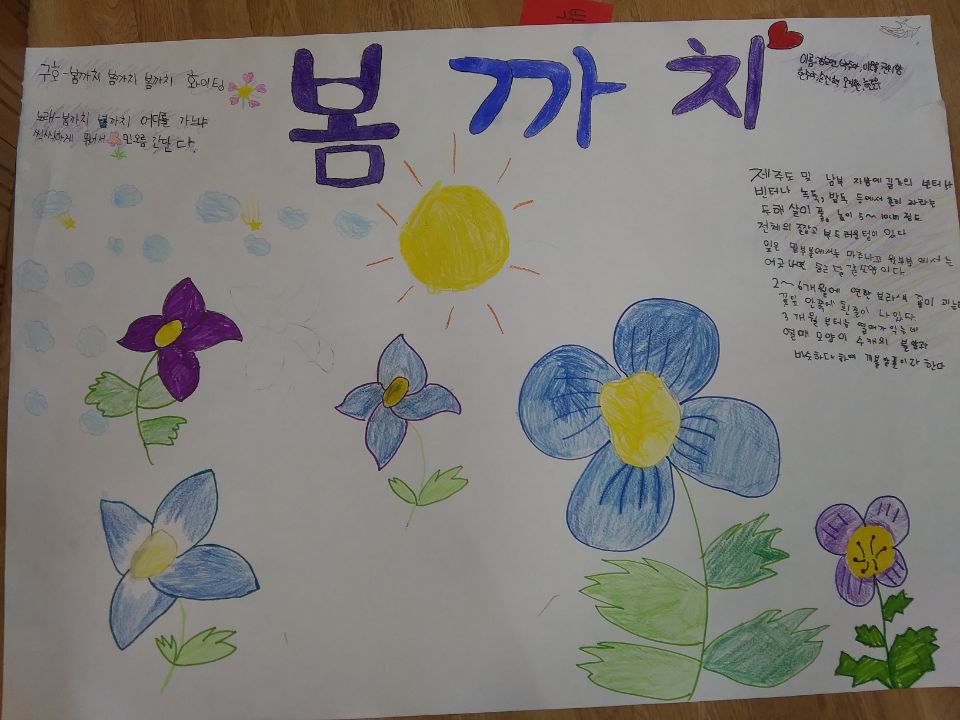 봄까치
구호-봄까치 봄까치 봄까치 화이팅
노래-봄까치 봄까치 어디를 가느냐
씩씩하게 피어서 민오름 간단다
이름-
제주도 및 남부 지방에 길가의 빈터나
빈터나 녹둑, 밭둑 등에서 흔히 자라는
두해살이 풀, 높이 5~10cm 정도
전체의 짧고 부드러운 털이 있다
잎은 밑부분에서는 마주나고 윗부분에서는
어긋나며 둥근 달걀 모양이다
2~6개월에 연한 보라색 꽃이 핀다
꽃잎 안쪽에 흰 줄이 나있다
3개월부터는 열매가 익는데
열매 모양이 수캐의 불알과
비슷하다 하여 개불알풀이라 한다